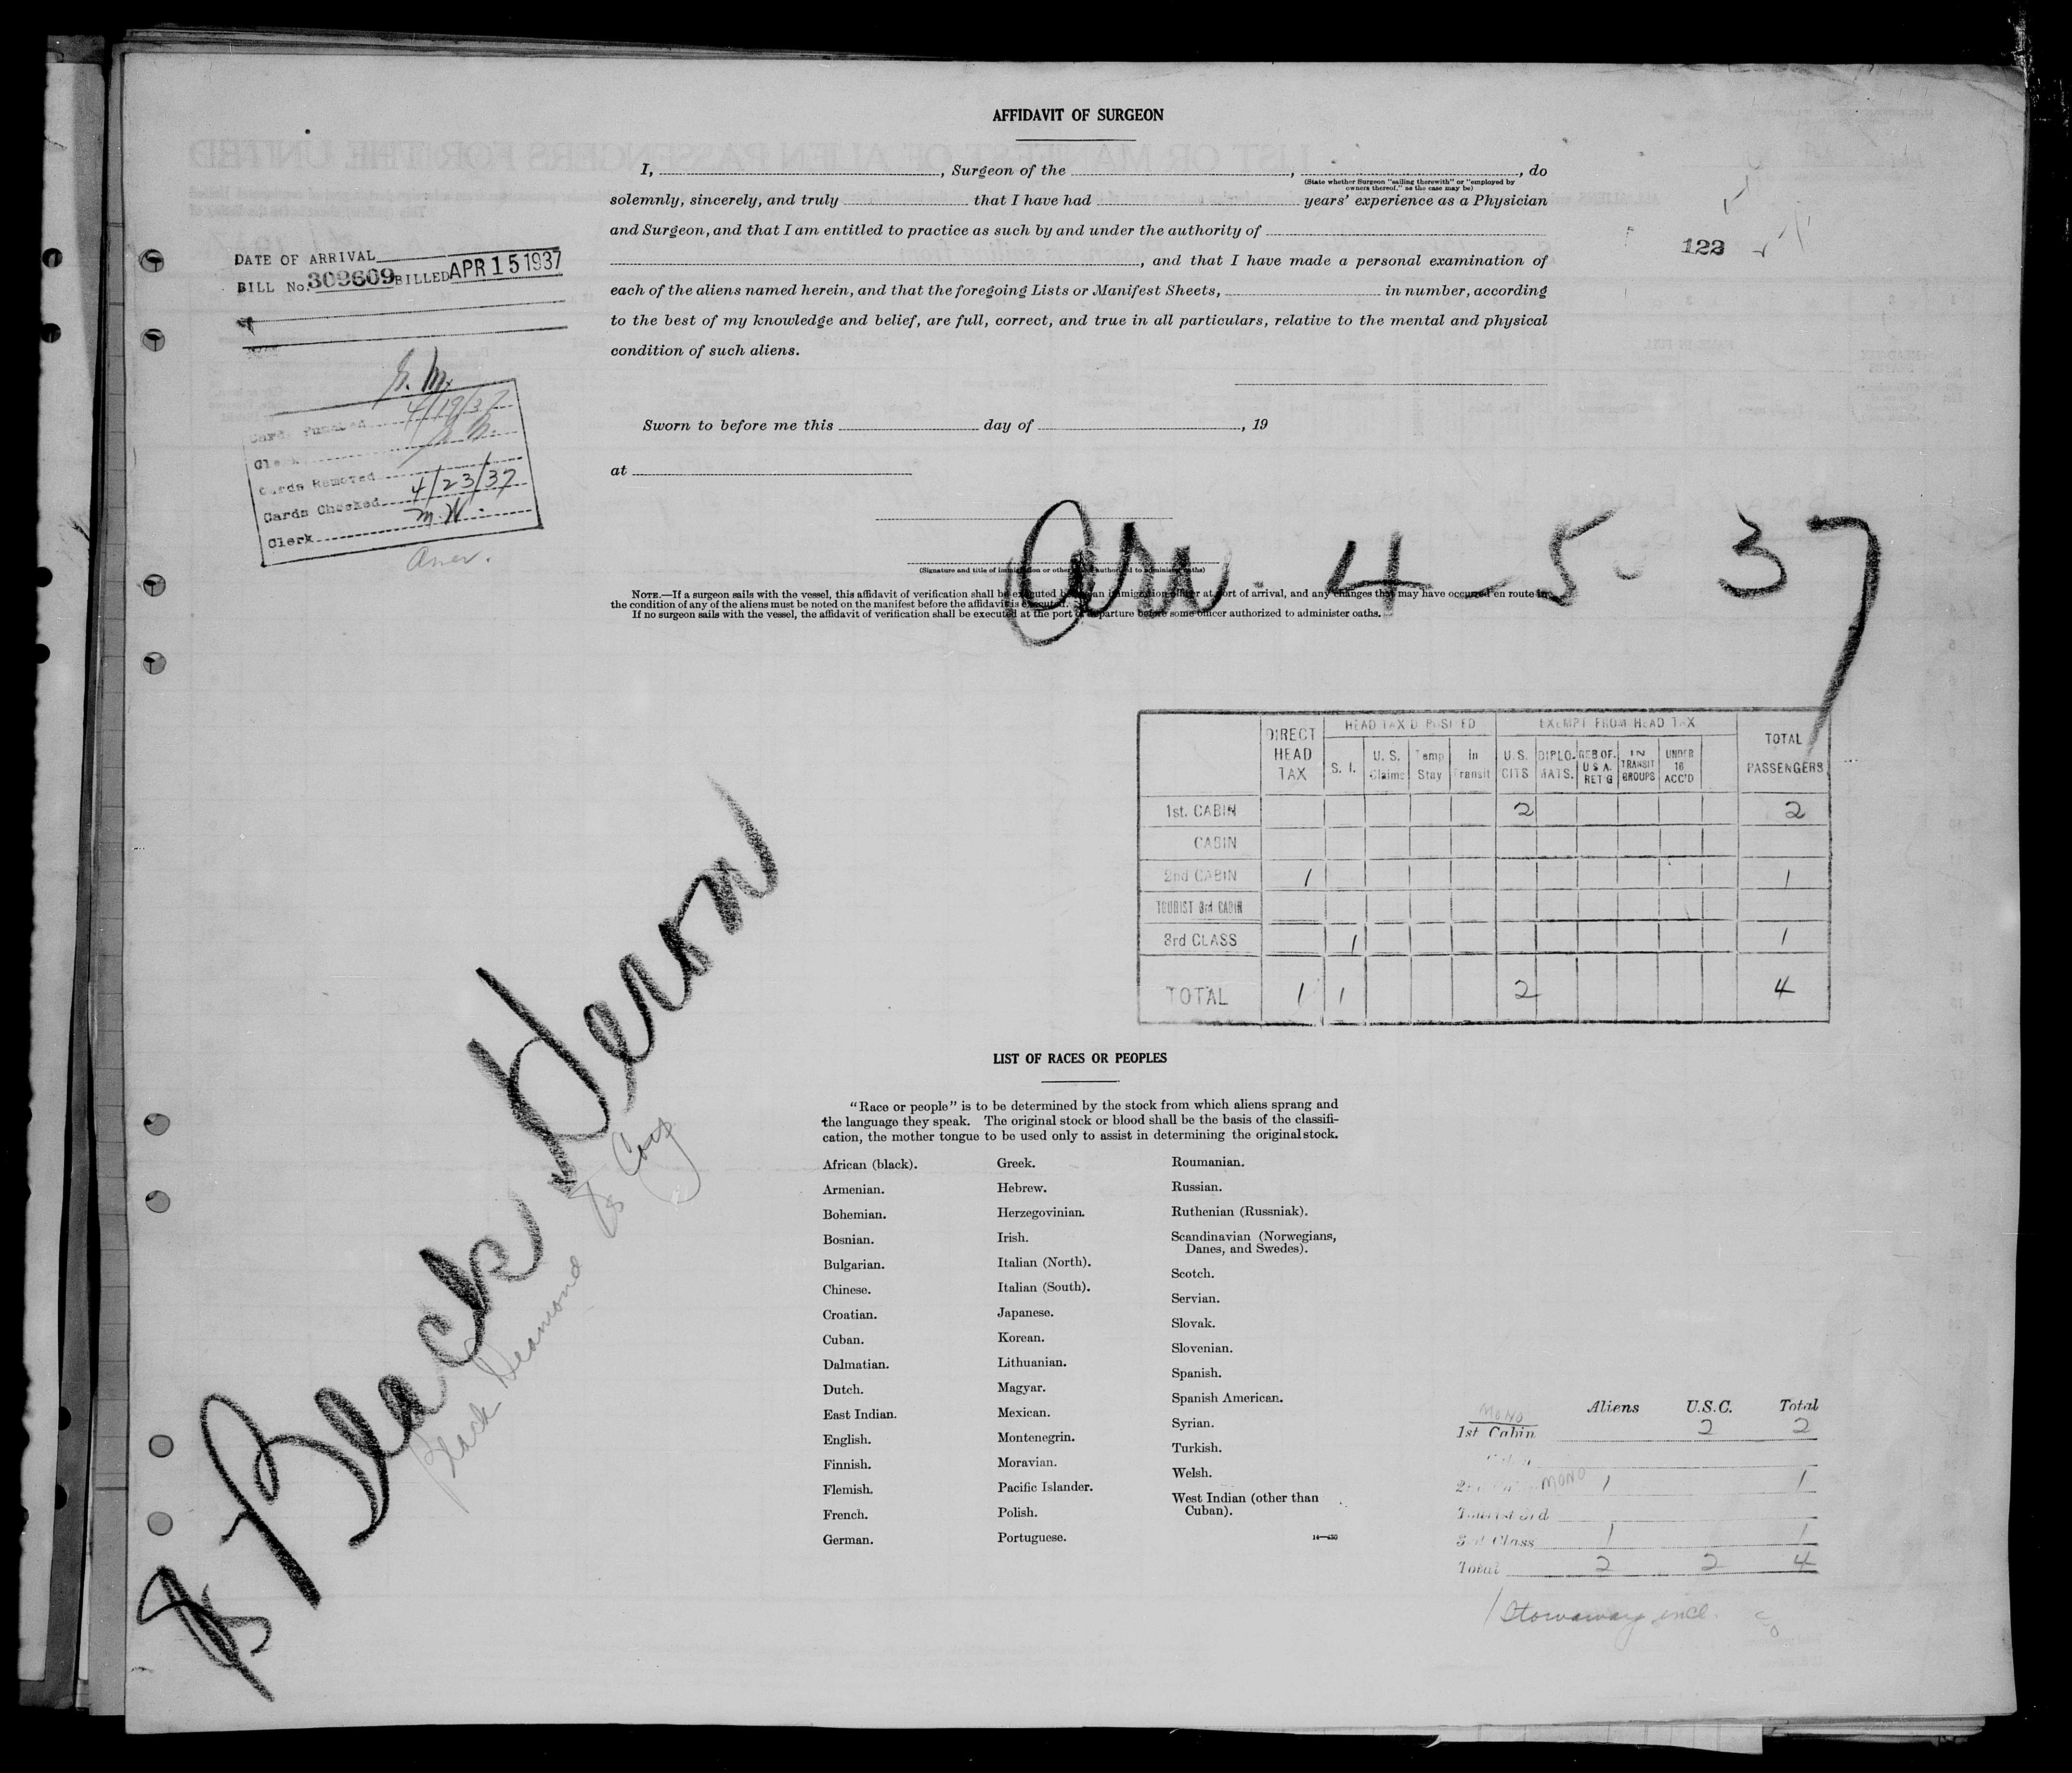 AFFIDAVIT OF SURGEON
I, , Surgeon of the , , do
(State whether Surgeon "sailing therewith" or "employed by
owners thereof," as the case may be)
solemnly, sincerely, and truly that I have had years' experience as a Physician
and Surgeon, and that I am entitled to practice as such by and under the authority of
, and that I have made a personal examination of
each of the aliens named herein, and that the foregoing Lists or Manifest Sheets, in number, according
to the best of my knowledge and belief, are full, correct, and true in all particulars, relative to the mental and physical
condition of such aliens.
Sworn to before me this day of , 19
at
(Signature and title of immigration or other officer authorized to administer oaths)
NOTE.—If a surgeon sails with the vessel, this affidavit of verification shall be executed before an immigration officer at port of arrival, and any changes that may have occurred en route in
the condition of any of the aliens must be noted on the manifest before the affidavit is executed.
If no surgeon sails with the vessel, the affidavit of verification shall be executed at the port of departure before some officer authorized to administer oaths.
122
DATE OF ARRIVAL
BILL No. 309609 BILLED APR 15 1937
G. M.
Cards Punched 4/19/37
Clerk G. M.
Cards Removed
Cards Checked 4/23/37
Clerk M. W.
Arr. 4 - 5 - 37
DIRECT HEAD TAX
HEAD TAX DEPOSITED
EXEMPT FROM HEAD TAX
TOTAL PASSENGERS
S. I. U. S. Claims Temp Stay In Transit U.S. CITS DIPLO-MATS. RES OF. U S A. RET'G IN TRANSIT GROUPS UNDER 16 ACC'D
1st. CABIN 2 2
CABIN
2nd CABIN 1 1
TOURIST 3rd CABIN
3rd CLASS 1 1
TOTAL 1 1 2 4
SS Black Heron
Black Diamond SS Coy
LIST OF RACES OR PEOPLES
"Race or people" is to be determined by the stock from which aliens sprang and
the language they speak. The original stock or blood shall be the basis of the classifi-
cation, the mother tongue to be used only to assist in determining the original stock.
African (black).
Armenian.
Bohemian.
Bosnian.
Bulgarian.
Chinese.
Croatian.
Cuban.
Dalmatian.
Dutch.
East Indian.
English.
Finnish.
Flemish.
French.
German.
Greek.
Hebrew.
Herzegovinian.
Irish.
Italian (North).
Italian (South).
Japanese.
Korean.
Lithuanian.
Magyar.
Mexican.
Montenegrin.
Moravian.
Pacific Islander.
Polish.
Portuguese.
Roumanian.
Russian.
Ruthenian (Russniak).
Scandinavian (Norwegians,
Danes, and Swedes).
Scotch.
Servian.
Slovak.
Slovenian.
Spanish.
Spanish American.
Syrian.
Turkish.
Welsh.
West Indian (other than
Cuban).
14—430
Aliens U.S.C. Total
MONO
1st Cabin 2 2
Cabin
2nd Cabin MONO 1 1
Tourist 3rd
3rd Class 1 1
Total 2 2 4
1 Stowaway incl.